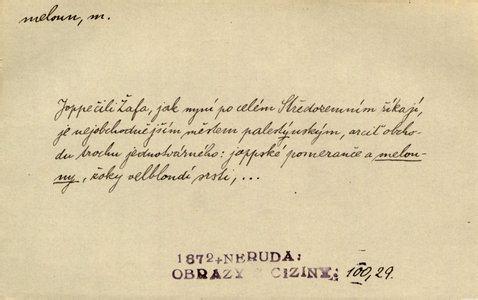 meloun, m.
Joppe čili Žafa, jak nyní po celém Středozemním říkají,
je nejobchodnějším městem palestýnským, arciť obcho-
du trochu jednotvárného: joppské pomeranče a melou-
ny, žoky velbloudí srsti, ...
1872+NERUDA:
OBRAZY Z CIZINY; 100, 29.